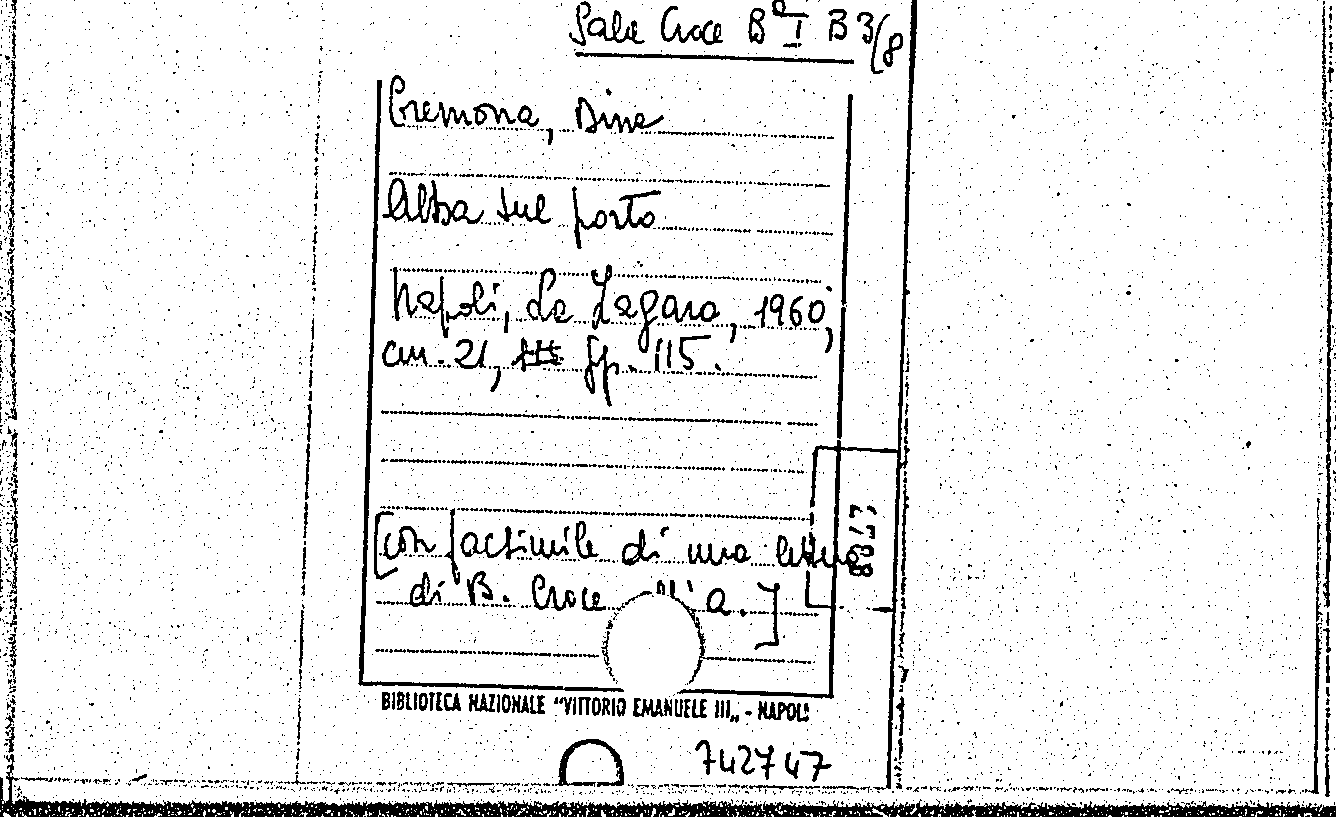 Sala Croce Bª I B 3/8
Cremona, Dina
Alba sul porto
Napoli, La Zagara, 1960,
cm. 21, pp. 115.
[con facsimile di una lettera
di B. Croce all'a.]
BIBLIOTECA NAZIONALE "VITTORIO EMANUELE III„ - NAPOLI
742747